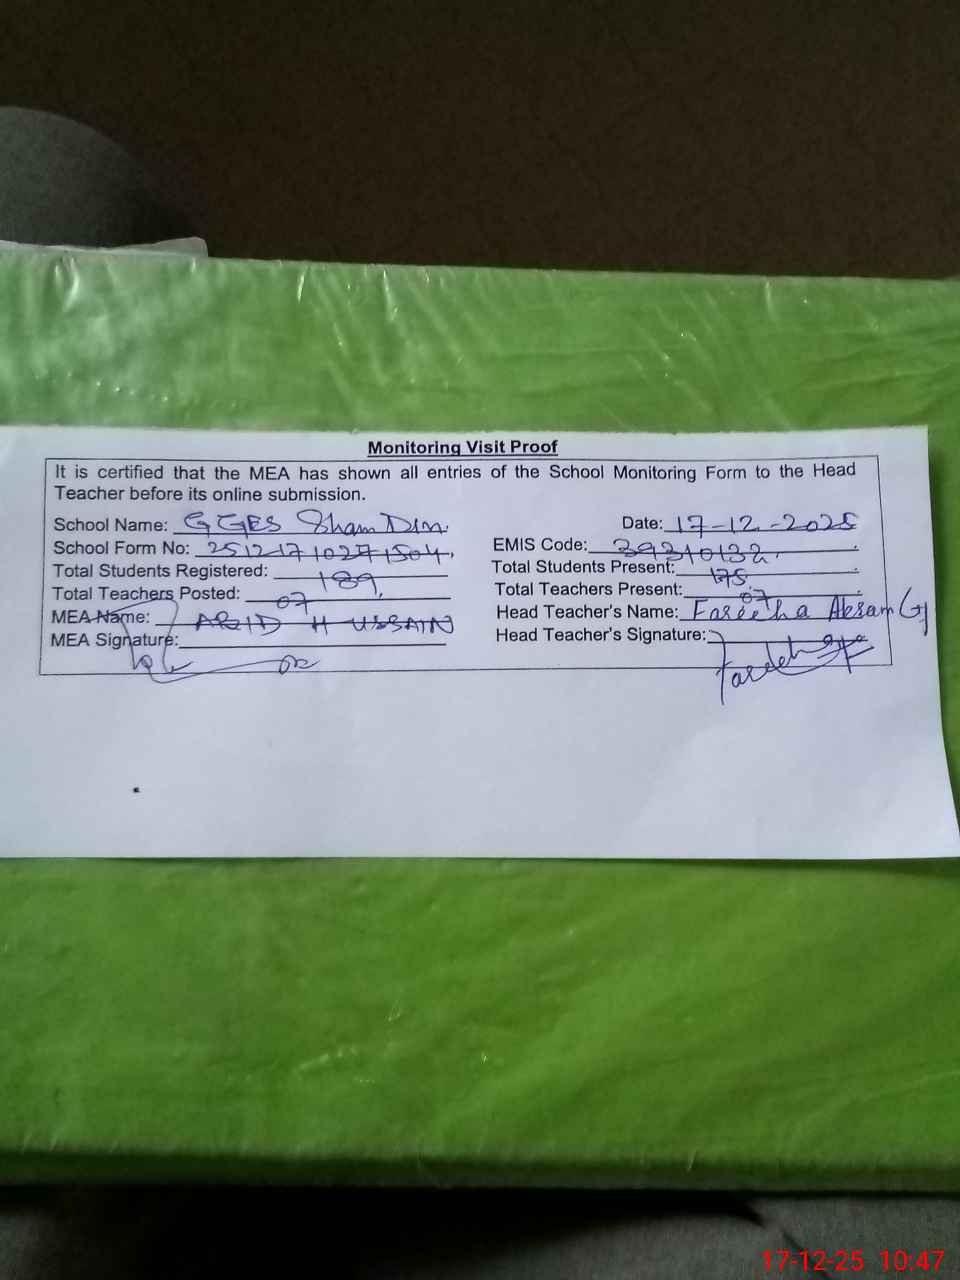 Monitoring Visit Proof
It is certified that the MEA has shown all entries of the School Monitoring Form to the Head
Teacher before its online submission.
School Name: GGES Sham Din Date: 17-12-2025
School Form No: 25121710271504 EMIS Code: 39310132
Total Students Registered: 189 Total Students Present: 175
Total Teachers Posted: 07 Total Teachers Present: 07
MEA Name: HUSSAIN Head Teacher's Name: Fareeha Akram
MEA Signature: Head Teacher's Signature:
17-12-25 10:47